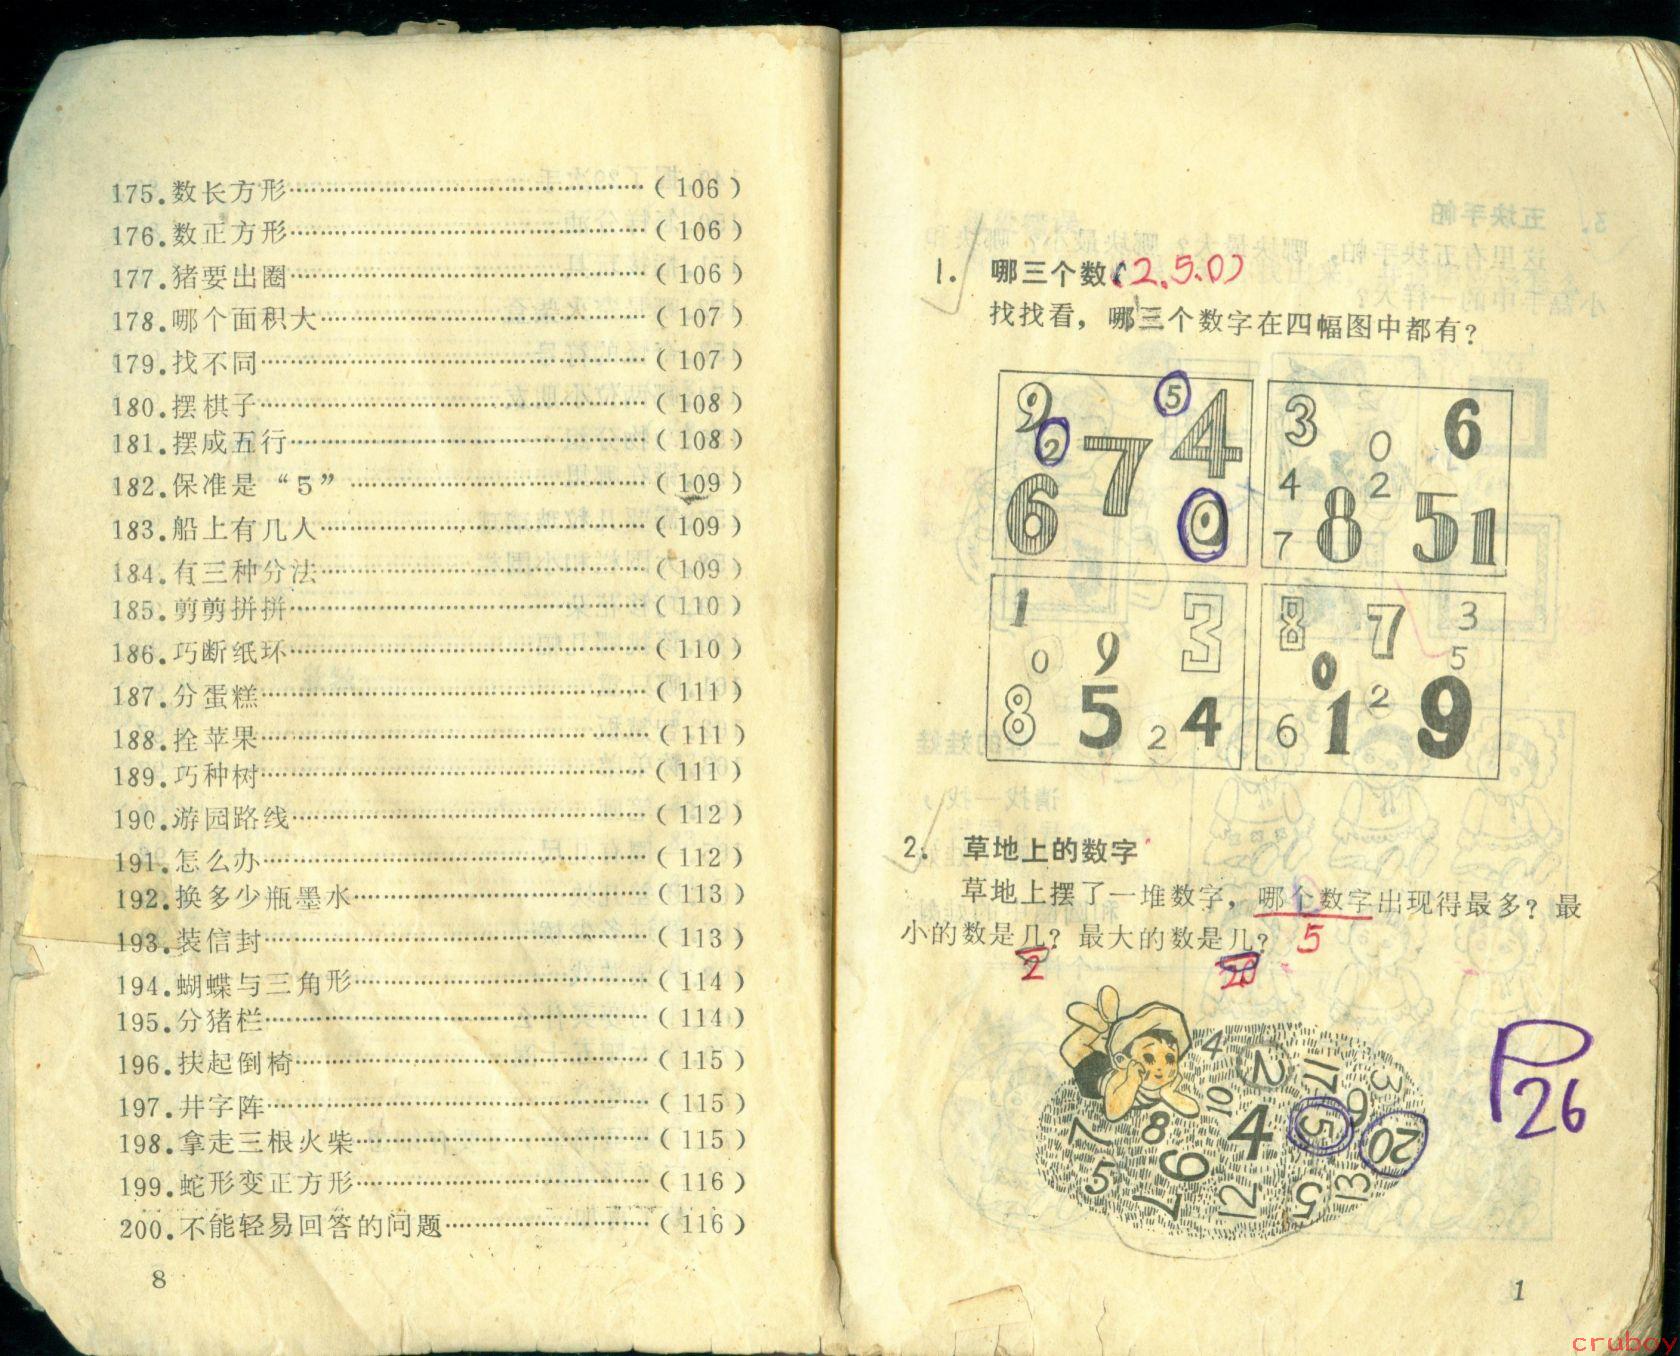 175.数长方形……………………………(106)
176.数正方形……………………………(106)
177.猪要出圈……………………………(106)
178.哪个面积大…………………………(107)
179.找不同………………………………(107)
180.摆棋子………………………………(108)
181.摆成五行……………………………(108)
182.保准是“5”…………………………(109)
183.船上有几人…………………………(109)
184.有三种分法…………………………(109)
185.剪剪拼拼……………………………(110)
186.巧断纸环……………………………(110)
187.分蛋糕………………………………(111)
188.拴苹果………………………………(111)
189.巧种树………………………………(111)
190.游园路线……………………………(112)
191.怎么办………………………………(112)
192.换多少瓶墨水………………………(113)
193.装信封………………………………(113)
194.蝴蝶与三角形………………………(114)
195.分猪栏………………………………(114)
196.扶起倒椅……………………………(115)
197.井字阵………………………………(115)
198.拿走三根火柴………………………(115)
199.蛇形变正方形………………………(116)
200.不能轻易回答的问题………………(116)
8
1. 哪三个数(2.5.0)
找找看，哪三个数字在四幅图中都有？
9 2 5 4 7 6 0
3 0 6 4 2 7 8 5 1
1 3 0 9 8 5 2 4
8 7 3 0 5 6 1 2 9
2. 草地上的数字
草地上摆了一堆数字，哪个数字出现得最多？最
小的数是几？最大的数是几？
5
2 20
4 2 17 3
10 9
7 8 4 5 20
5 9 13
7 12 5
P26
1
cruboy